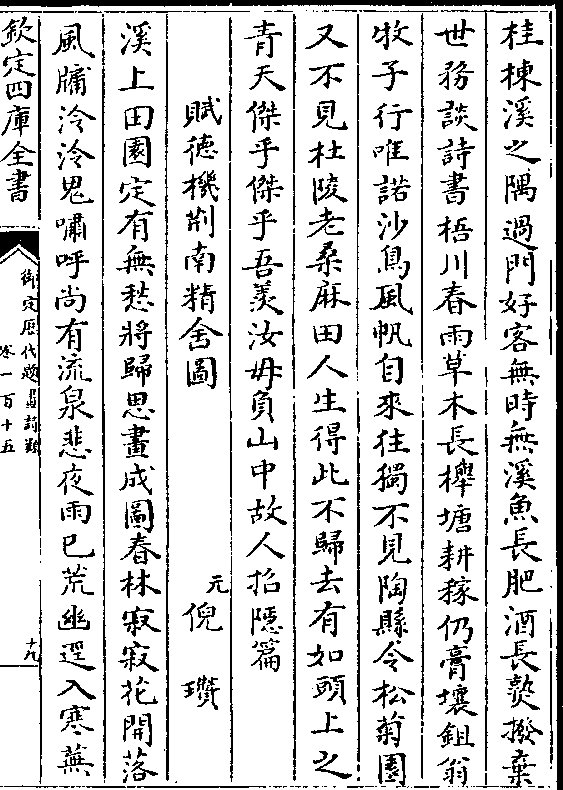 桂棟溪之隅過門好客無時無溪魚長肥酒長熟撥棄
世務談詩書梧川春雨草木長櫸塘耕稼仍膏壤鉏翁
牧子行唯諾沙鳥風帆自來往獨不見陶縣令松菊園
又不見杜陵老桑麻田人生得此不歸去有如頭上之
青天傑乎傑乎吾羡汝毋負山中故人招隱篇
賦德機荆南精舍圖
元倪瓚
溪上田園定有無愁將歸思畫成圖春林寂寂花開落
風牖泠泠鬼嘯呼尚有流泉悲夜雨巳荒幽逕入寒蕪
欽定四庫全書
御定歷代題畫詩類
卷一百十五
十九